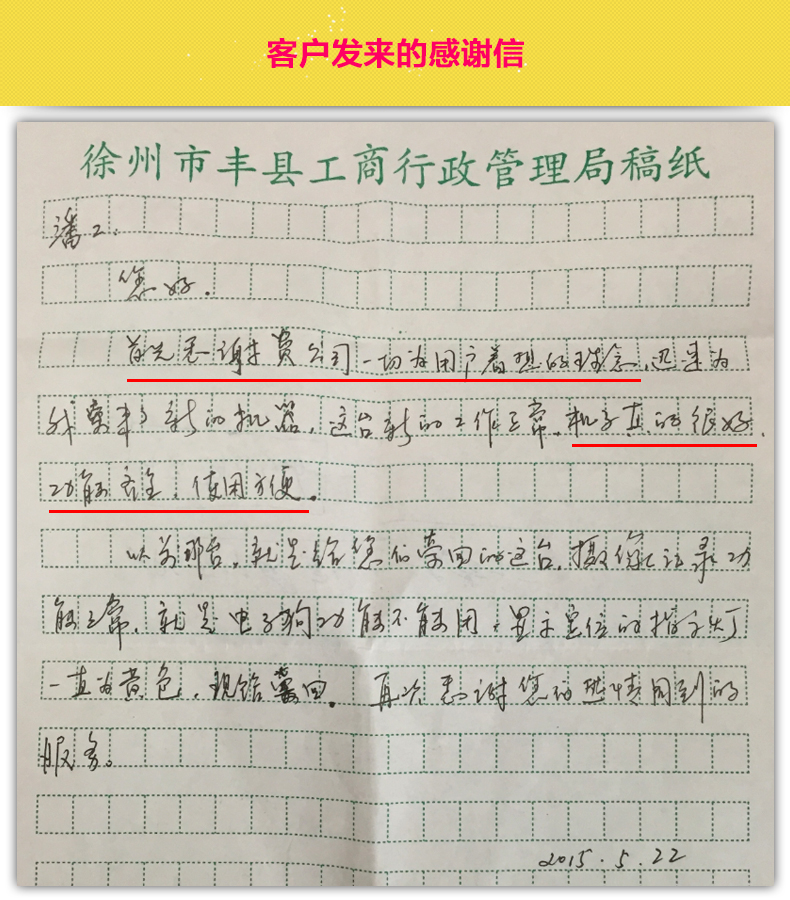 客户发来的感谢信
徐州市丰县工商行政管理局稿纸
潘工:
您好.
首先感谢贵公司一切为用户着想的理念,迅速为
我寄来了新的机器。这台新的工作正常,机子真的很好,
功能齐全,使用方便。
以前那台,就是给您们寄回的这台,摄像记录功
能正常,就是电子狗功能不能用,显示定位的指示灯
一直为黄色,现给寄回。再次感谢您的热情周到的
服务。
2015.5.22